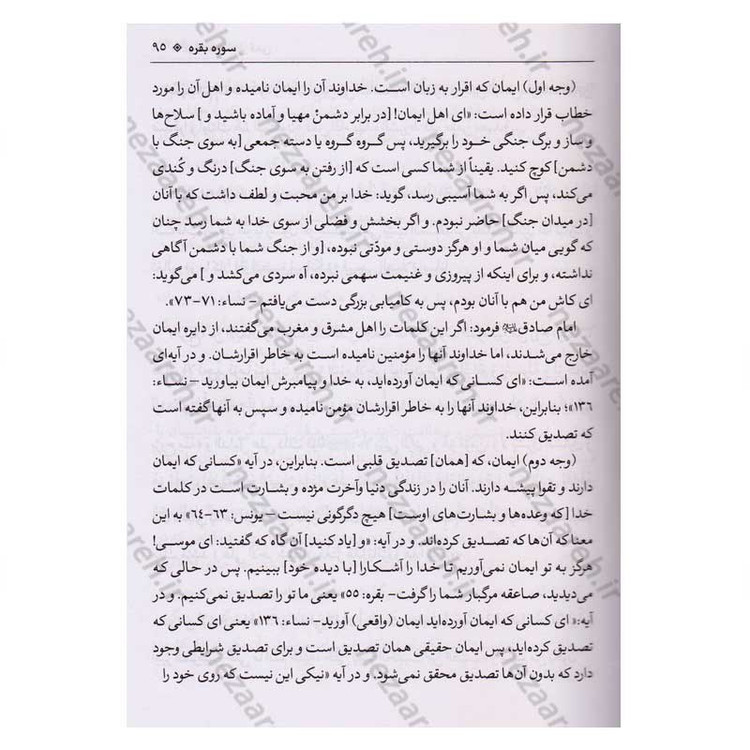 سوره بقره ※ ۹۵
(وجه اول) ایمان که اقرار به زبان است. خداوند آن را ایمان نامیده و اهل آن را مورد
خطاب قرار داده است: «ای اهل ایمان! [در برابر دشمنْ مهیا و آماده باشید و] سلاح‌ها
و ساز و برگ جنگی خود را برگیرید، پس گروه گروه یا دسته جمعی [به سوی جنگ با
دشمن] کوچ کنید. یقیناً از شما کسی است که [از رفتن به سوی جنگ] درنگ و کُندی
می‌کند، پس اگر به شما آسیبی رسد، گوید: خدا بر من محبت و لطف داشت که با آنان
[در میدان جنگ] حاضر نبودم. و اگر بخشش و فضلی از سوی خدا به شما رسد چنان
که گویی میان شما و او هرگز دوستی و مودّتی نبوده، [و از جنگ شما با دشمن آگاهی
نداشته، و برای اینکه از پیروزی و غنیمت سهمی نبرده، آه سردی می‌کشد و] می‌گوید:
ای کاش من هم با آنان بودم، پس به کامیابی بزرگی دست می‌یافتم- نساء: ۷۱-۷۳».
امام صادق فرمود: اگر این کلمات را اهل مشرق و مغرب می‌گفتند، از دایره ایمان
خارج می‌شدند، اما خداوند آنها را مؤمنین نامیده است به خاطر اقرارشان. و در آیه‌ای
آمده است: «ای کسانی که ایمان آورده‌اید، به خدا و پیامبرش ایمان بیاورید- نساء:
۱۳۶»؛ بنابراین، خداوند آنها را به خاطر اقرارشان مؤمن نامیده و سپس به آنها گفته است
که تصدیق کنند.
(وجه دوم) ایمان، که [همان] تصدیق قلبی است. بنابراین، در آیه «کسانی که ایمان
دارند و تقوا پیشه دارند. آنان را در زندگی دنیا وآخرت مژده و بشارت است در کلمات
خدا [که وعده‌ها و بشارت‌های اوست] هیچ دگرگونی نیست- یونس: ۶۳-۶۴» به این
معنا که آن‌ها که تصدیق کرده‌اند. و در آیه: «و [یاد کنید] آن گاه که گفتید: ای موسی!
هرگز به تو ایمان نمی‌آوریم تا خدا را آشکارا [با دیده خود] ببینیم. پس در حالی که
می‌دیدید، صاعقه مرگبار شما را گرفت- بقره: ۵۵» یعنی ما تو را تصدیق نمی‌کنیم. و در
آیه:« ای کسانی که ایمان آورده‌اید ایمان (واقعی) آورید- نساء: ۱۳۶» یعنی ای کسانی که
تصدیق کرده‌اید، پس ایمان حقیقی همان تصدیق است و برای تصدیق شرایطی وجود
دارد که بدون آن‌ها تصدیق محقق نمی‌شود. و در آیه «نیکی این نیست که روی خود را
nezaareh.ir